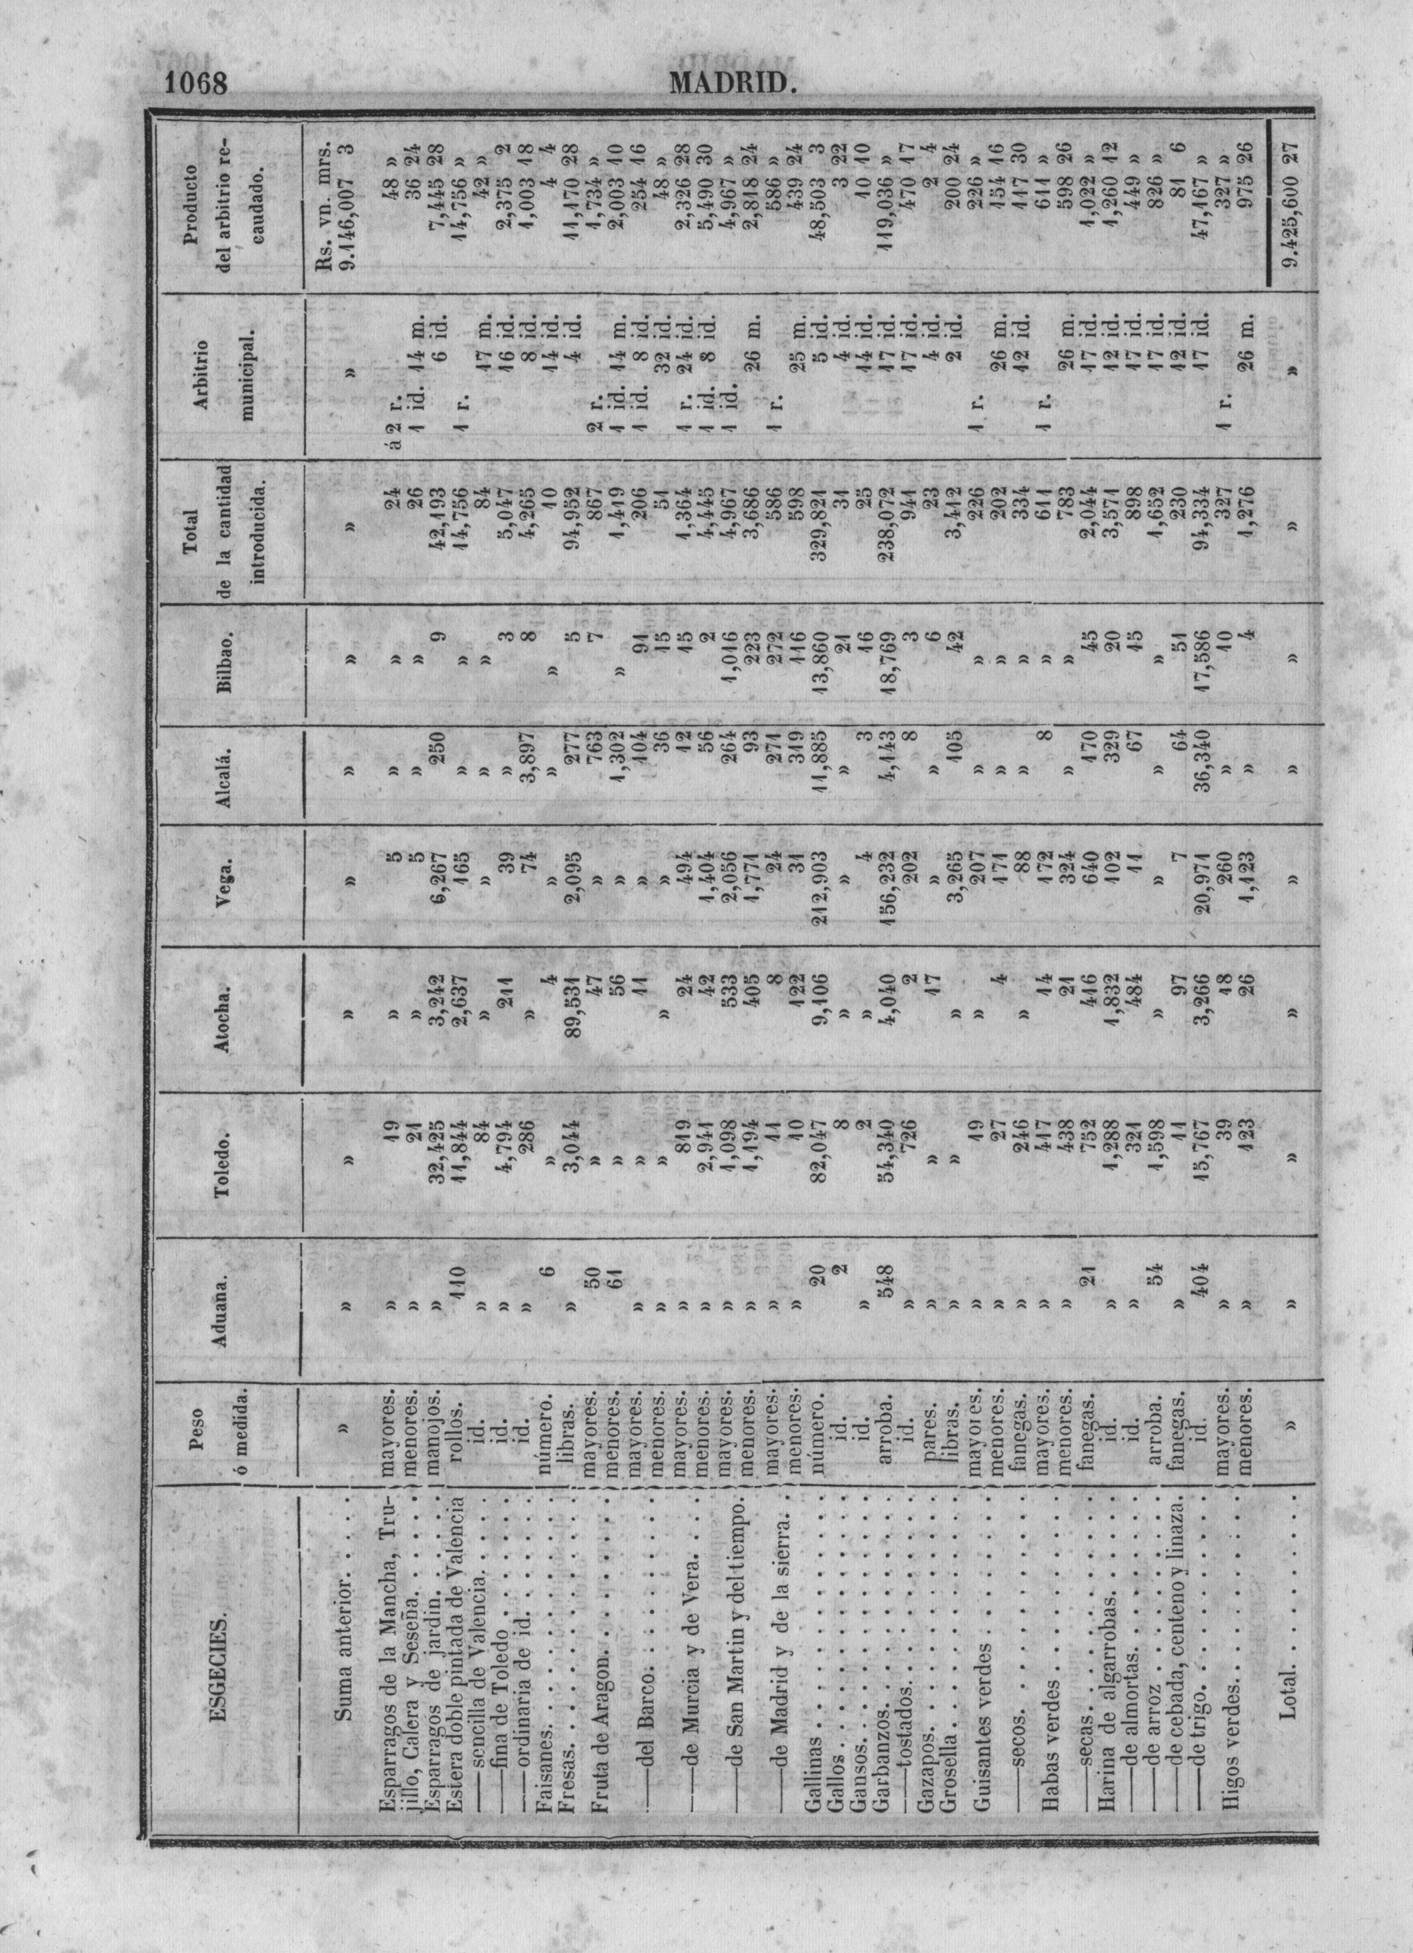 1068
MADRID.
ESGECIES. Peso ó medida. Aduana. Toledo. Atocha. Vega. Alcalá. Bilbao. Total de la cantidad introducida. Arbitrio municipal. Producto del arbitrio re-caudado.
Rs. vn. mrs.
Suma anterior. . . . » » » » » » » » » 9.146,007 3
Esparragos de la Mancha, Tru- mayores. » 19 » 5 » » 24 á 2 r. 48 »
jillo, Calera y Seseña. . . . . menores. » 21 » 5 » » 26 1 id. 14 m. 36 24
Esparragos de jardin. . . . . manojos. » 32,425 3,242 6,267 250 9 42,193 6 id. 7,445 28
Estera doble pintada de Valencia rollos. 110 11,844 2,637 165 » » 14,756 1 r. 14,756 »
—sencilla de Valencia. . . . id. » 84 » » » » 84 17 m. 42 »
—fina de Toledo . . . . . . id. » 4,794 211 39 » 3 5,047 16 id. 2,375 2
—ordinaria de id. . . . . . id. » 286 » 74 3,897 8 4,265 8 id. 1,003 18
Faisanes. . . . . . . . . . número. 6 » 4 » » » 10 14 id. 4 4
Fresas. . . . . . . . . . . libras. » 3,044 89,531 2,095 277 5 94,952 4 id. 11,170 28
Fruta de Aragon. . . . . . . mayores. 50 » 47 » 763 7 867 2 r. 1,734 »
menores. 61 » 56 » 1,302 » 1,419 1 id. 14 m. 2,003 10
—del Barco. . . . . . . . mayores. » » 11 » 104 91 206 1 id. 8 id. 254 16
menores. » » » » 36 15 51 32 id. 48 »
—de Murcia y de Vera. . . . mayores. » 819 24 494 12 15 1,364 1 r. 24 id. 2,326 28
menores. » 2,941 42 1,404 56 2 4,445 1 id. 8 id. 5,490 30
—de San Martin y del tiempo. mayores. » 1,098 533 2,056 264 1,016 4,967 1 id. 4,967 »
menores. » 1,194 405 1,771 93 223 3,686 26 m. 2,818 24
—de Madrid y de la sierra. . mayores. » 11 8 24 271 272 586 1 r. 586 »
menores. » 10 122 31 319 116 598 25 m. 439 24
Gallinas . . . . . . . . . . número. 20 82,047 9,106 212,903 11,885 13,860 329,821 5 id. 48,503 3
Gallos . . . . . . . . . . . id. 2 8 » » » 21 31 4 id. 3 22
Gansos. . . . . . . . . . . id. » 2 » 4 3 16 25 14 id. 10 10
Garbanzos. . . . . . . . . . arroba. 548 54,340 4,040 156,232 4,143 18,769 238,072 17 id. 119,036 »
—tostados. . . . . . . . . id. » 726 2 202 8 3 941 17 id. 470 17
Gazapos. . . . . . . . . . . pares. » » 17 » » 6 23 4 id. 2 4
Grosella . . . . . . . . . . libras. » » » 3,265 105 42 3,412 2 id. 200 24
Guisantes verdes . . . . . . . mayores. » 19 » 207 » » 226 1 r. 226 »
menores. » 27 4 171 » » 202 26 m. 154 16
—secos. . . . . . . . . . fanegas. » 246 » 88 » » 334 12 id. 117 30
Habas verdes . . . . . . . . mayores. » 417 14 172 8 » 611 1 r. 611 »
menores. » 438 21 324 » » 783 26 m. 598 26
—secas. . . . . . . . . . fanegas. 21 752 116 640 470 45 2,044 17 id. 1,022 »
Harina de algarrobas. . . . . id. » 1,288 1,832 102 329 20 3,571 12 id. 1,260 12
—de almortas. . . . . . . . id. » 321 484 11 67 15 898 17 id. 449 »
—de arroz . . . . . . . . . arroba. 54 1,598 » » » » 1,652 17 id. 826 »
—de cebada, centeno y linaza. fanegas. » 11 97 7 64 51 230 12 id. 81 6
—de trigo. . . . . . . . . id. 404 15,767 3,266 20,971 36,340 17,586 94,334 17 id. 47,167 »
Higos verdes. . . . . . . . mayores. » 39 18 260 » 10 327 1 r. 327 »
menores. » 123 26 1,123 » 4 1,276 26 m. 975 26
Lotal. . . . . . . . » » » » » » » » » 9.425,600 27